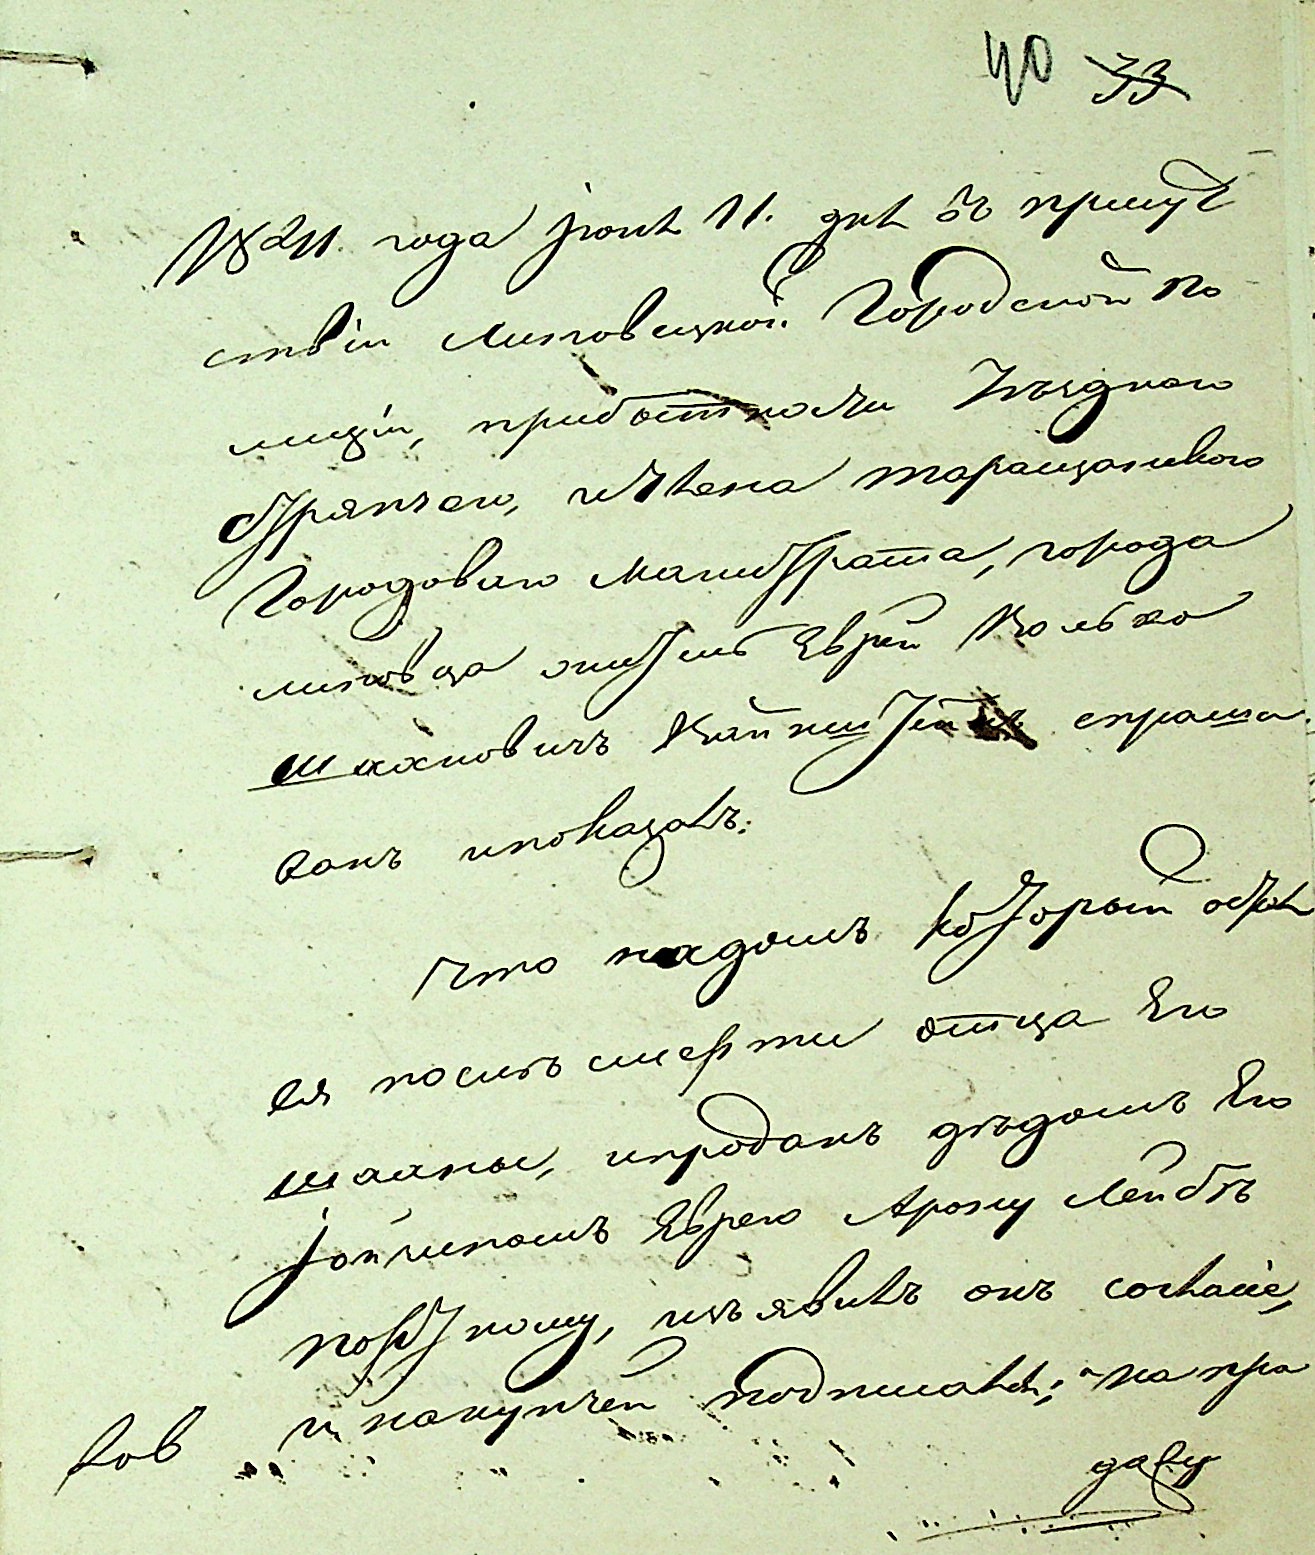 40 33
1841. года Июня 11. дня въ присут
ствіи Липовецкой Городской по
лиціи, прибытности Уѣзднаго
Стряпчего, и Члена таращанского
Городоваго Магистрата, города
липовца житель Еврей Волько
Шахновичъ спраши
ванъ и показалъ:
Что на домъ который остал
ся послѣ смерти отца Его
шахны, и проданъ дѣдомъ Его
Еврею Арону Лейбѣ
изъявилъ онъ согласіе,
и на купчей подписался; на про
дажу